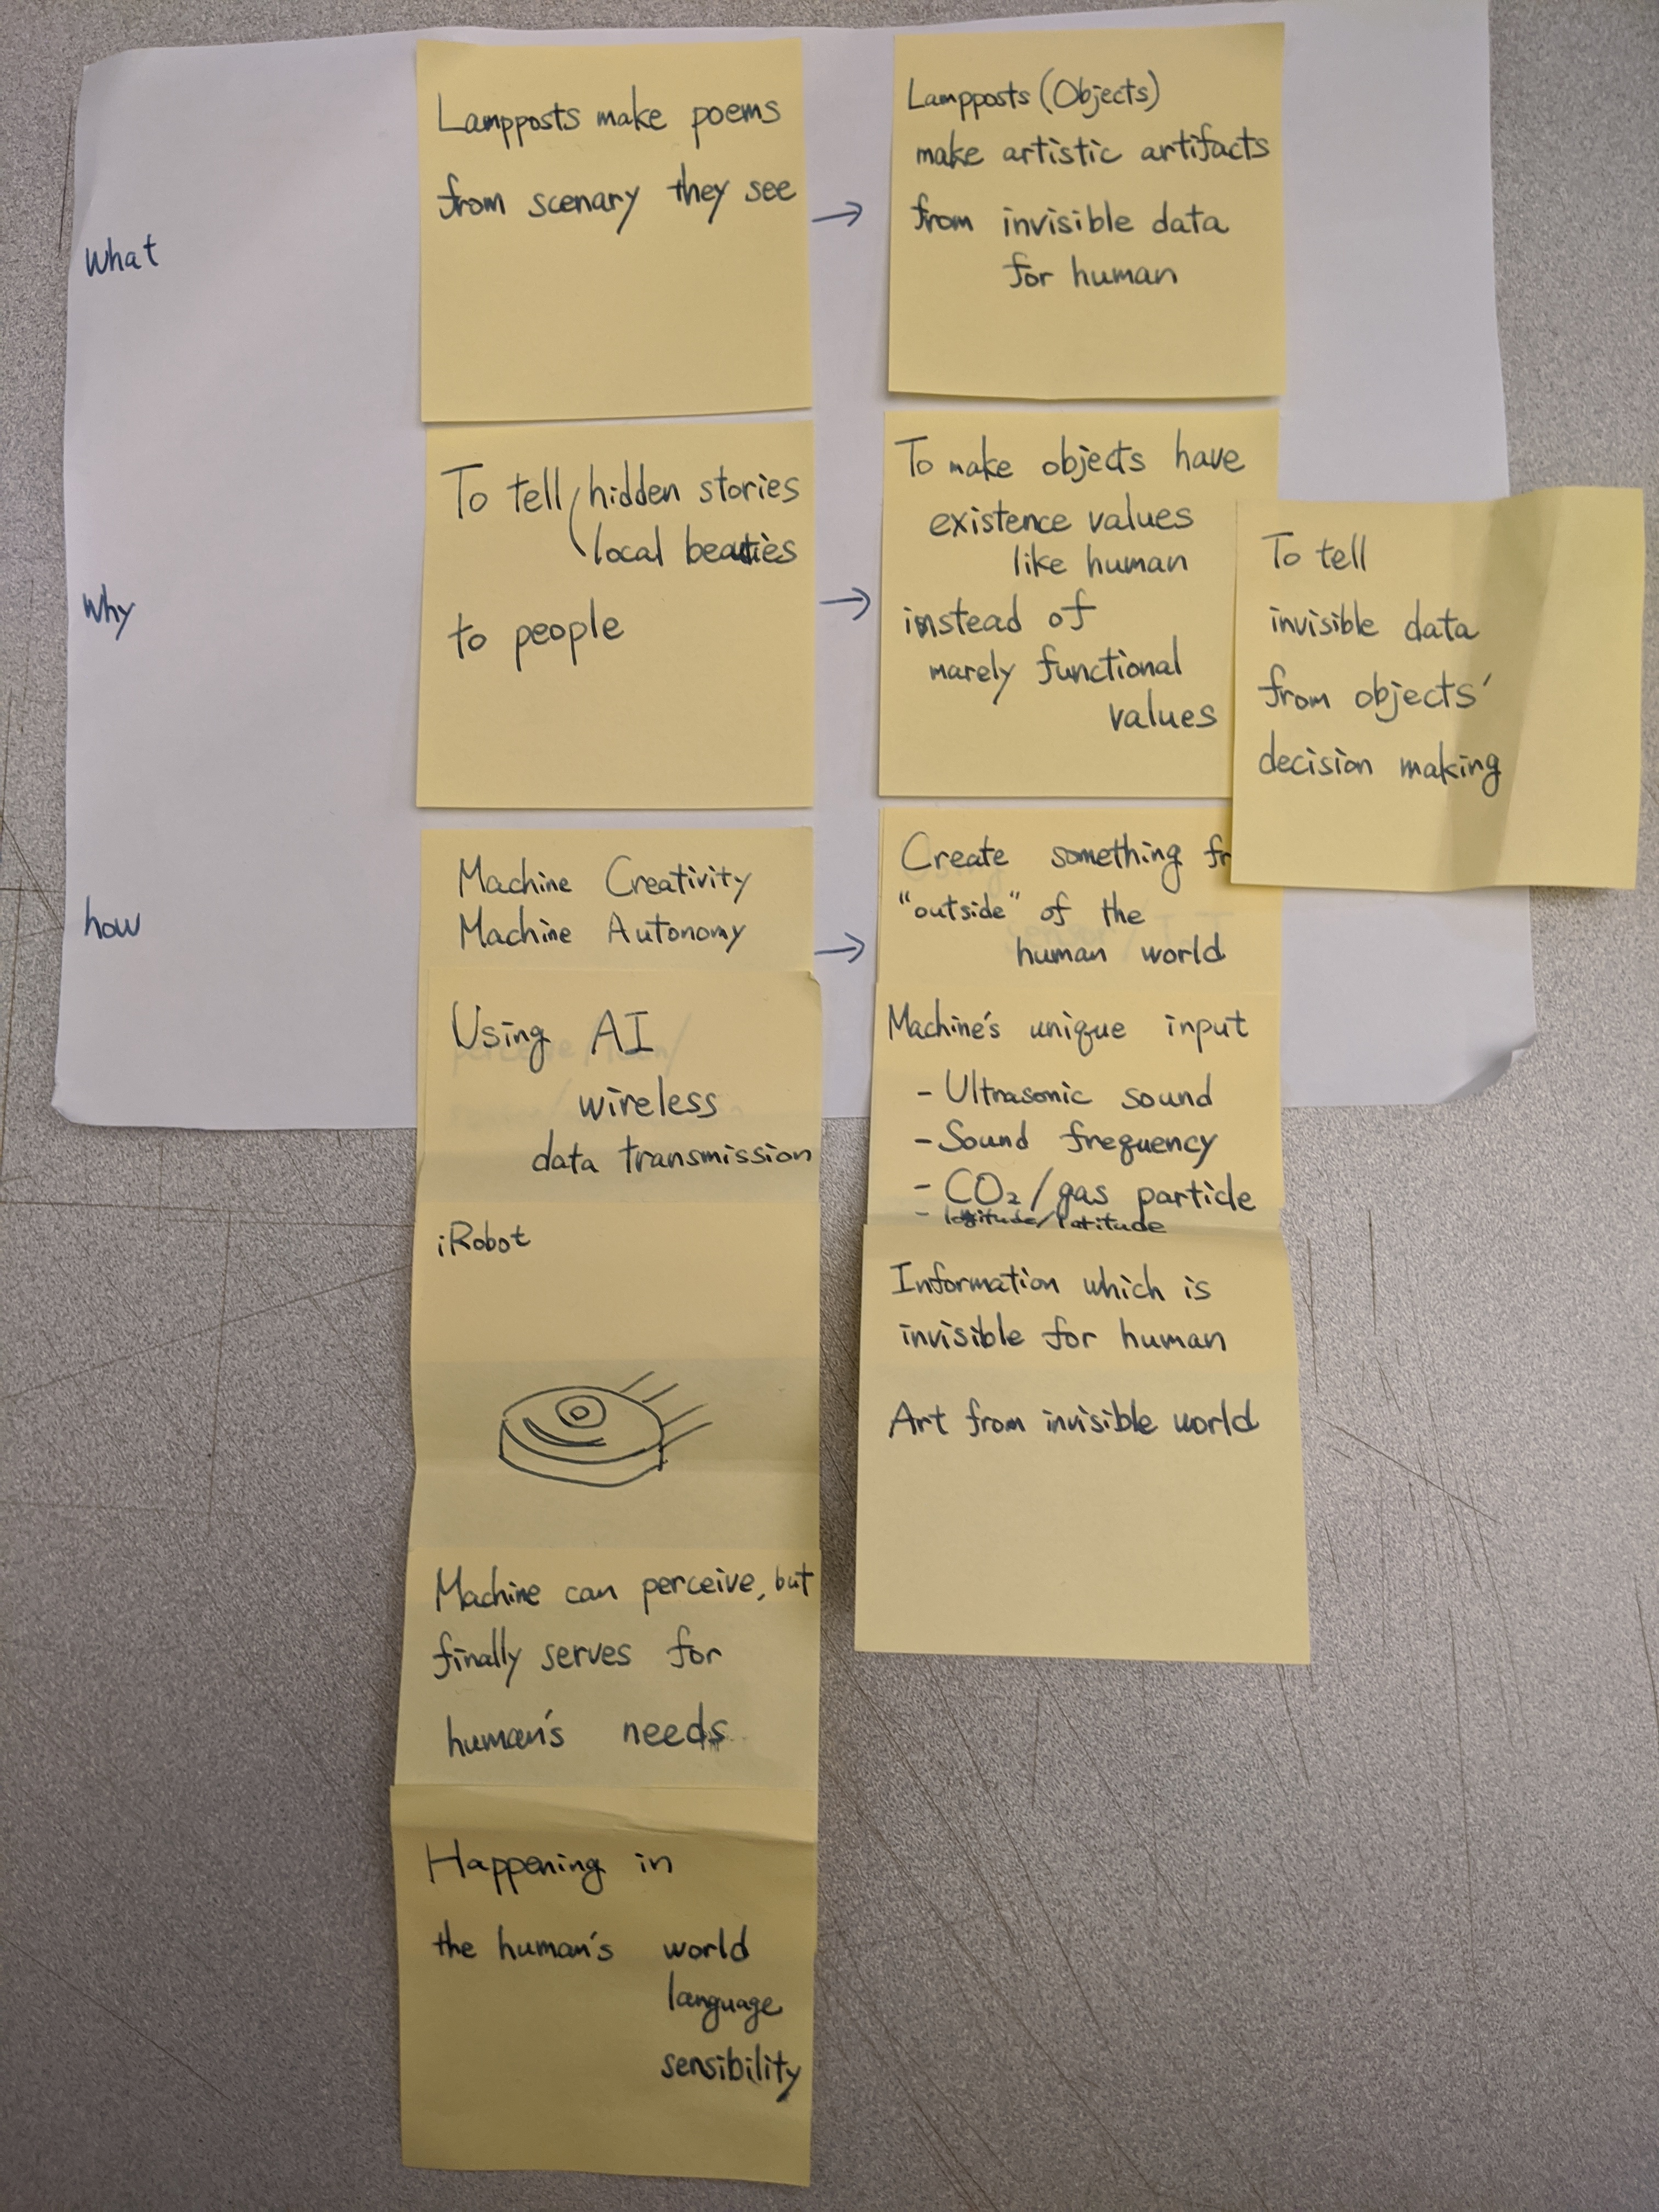 What
Lampposts make poems
from scenary they see
→
Lampposts (Objects)
make artistic artifacts
from invisible data
for human
Why
To tell hidden stories
local beauties
to people
→
To make objects have
existence values
like human
instead of
marely functional
values
To tell
invisible data
from objects'
decision making
how
Machine Creativity
Machine Autonomy
→
Create something fr
"outside" of the
human world
Using AI
wireless
data transmission
Machine's unique input
- Ultrasonic sound
- Sound frequency
- CO₂/gas particle
- /latitude
iRobot
Information which is
invisible for human
Art from invisible world
Machine can perceive, but
finally serves for
human's needs
Happening in
the human's world
language
sensibility